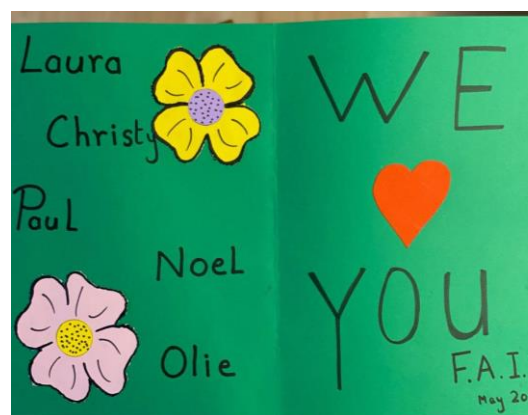 Laura
Christy
Paul
Noel
Olie
WE
YOU
F.A.I.
May 20